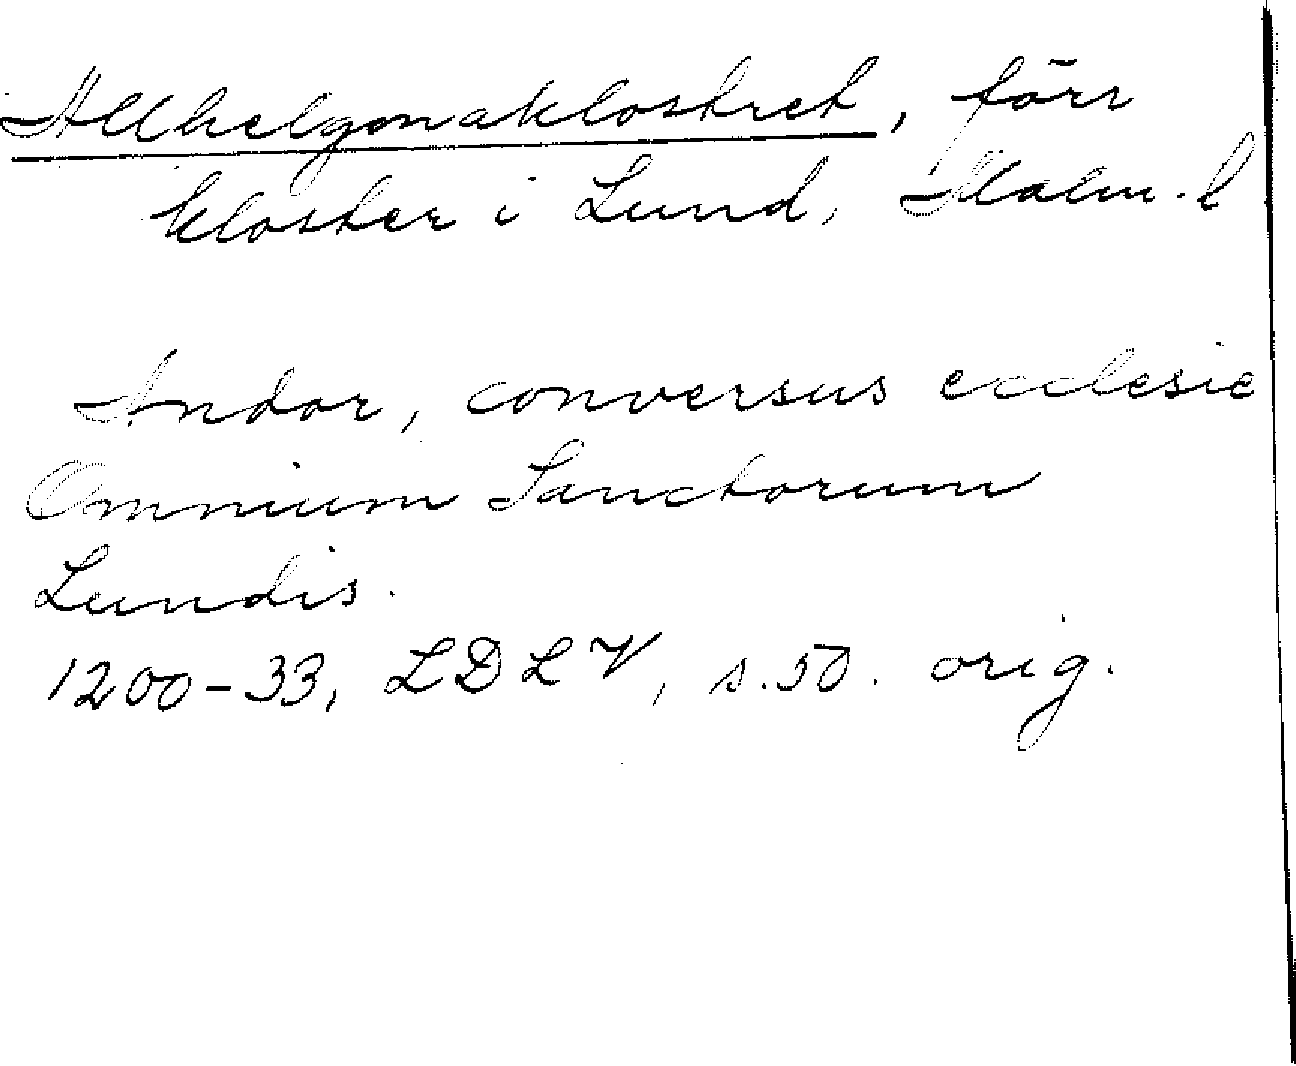 Allhelgonaklostret, förr
kloster i Lund, Malm. l
Andor, conversus ecclesie
Omnium Sanctorum
Lundis.
1200-33, LDLV, s. 50. orig.